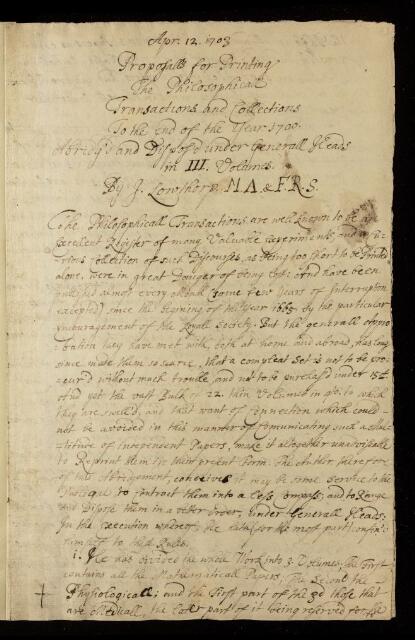 Apr. 12. 1703
Proposalls for Printing
The Philosophicall
Transactions and Collections
To the End of the Year 1700.
Abridg'd and Dispos'd under Generall Heads
in III. Volumes.
By J. Lowthorp, M.A. & F.R.S.
The Philosophicall Transactions are well known to be an
Excellent Register of many Valuable Experiments and a
Collection of such Discourses, as being too short to be Printed
alone, were in great Danger of being lost: And have been
publish'd almost every Month (some few Years of Interruption
excepted) since the begining of the Year 1665 by the particular
Encouragement of the Royall Society. But the generall Appro-
bation they have met with, both at home and abroad, has long
since made them so scarce, that a compleat Set is not to be pro-
cur'd without much trouble, and not to be purchas'd under
And yet the vast Bulk of 22. thin Volumes in 4to. to which
they are swell'd; and that want of Connection which could
not be avoided in this manner of Communicating such a Mul-
titude of Independent Papers, make it altogether unadviseable
to Reprint them in their present Form. The Author therefore
of this Abridgement, conceives it may be some Service to the
Publique to contract them into a less Compass, and to Range
and Dispose them in a better Order, under Generall Heads:
In the Execution whereof, he hath (for the most part) confin'd
himself to these Rules.
1. He has divided the whole Work into 3 Volumes; the First
contains all the Mathematicall Papers, The Second the
Physiologicall; and the First part of the 3d those that
are Medicall, the Last part of it being reserved for the